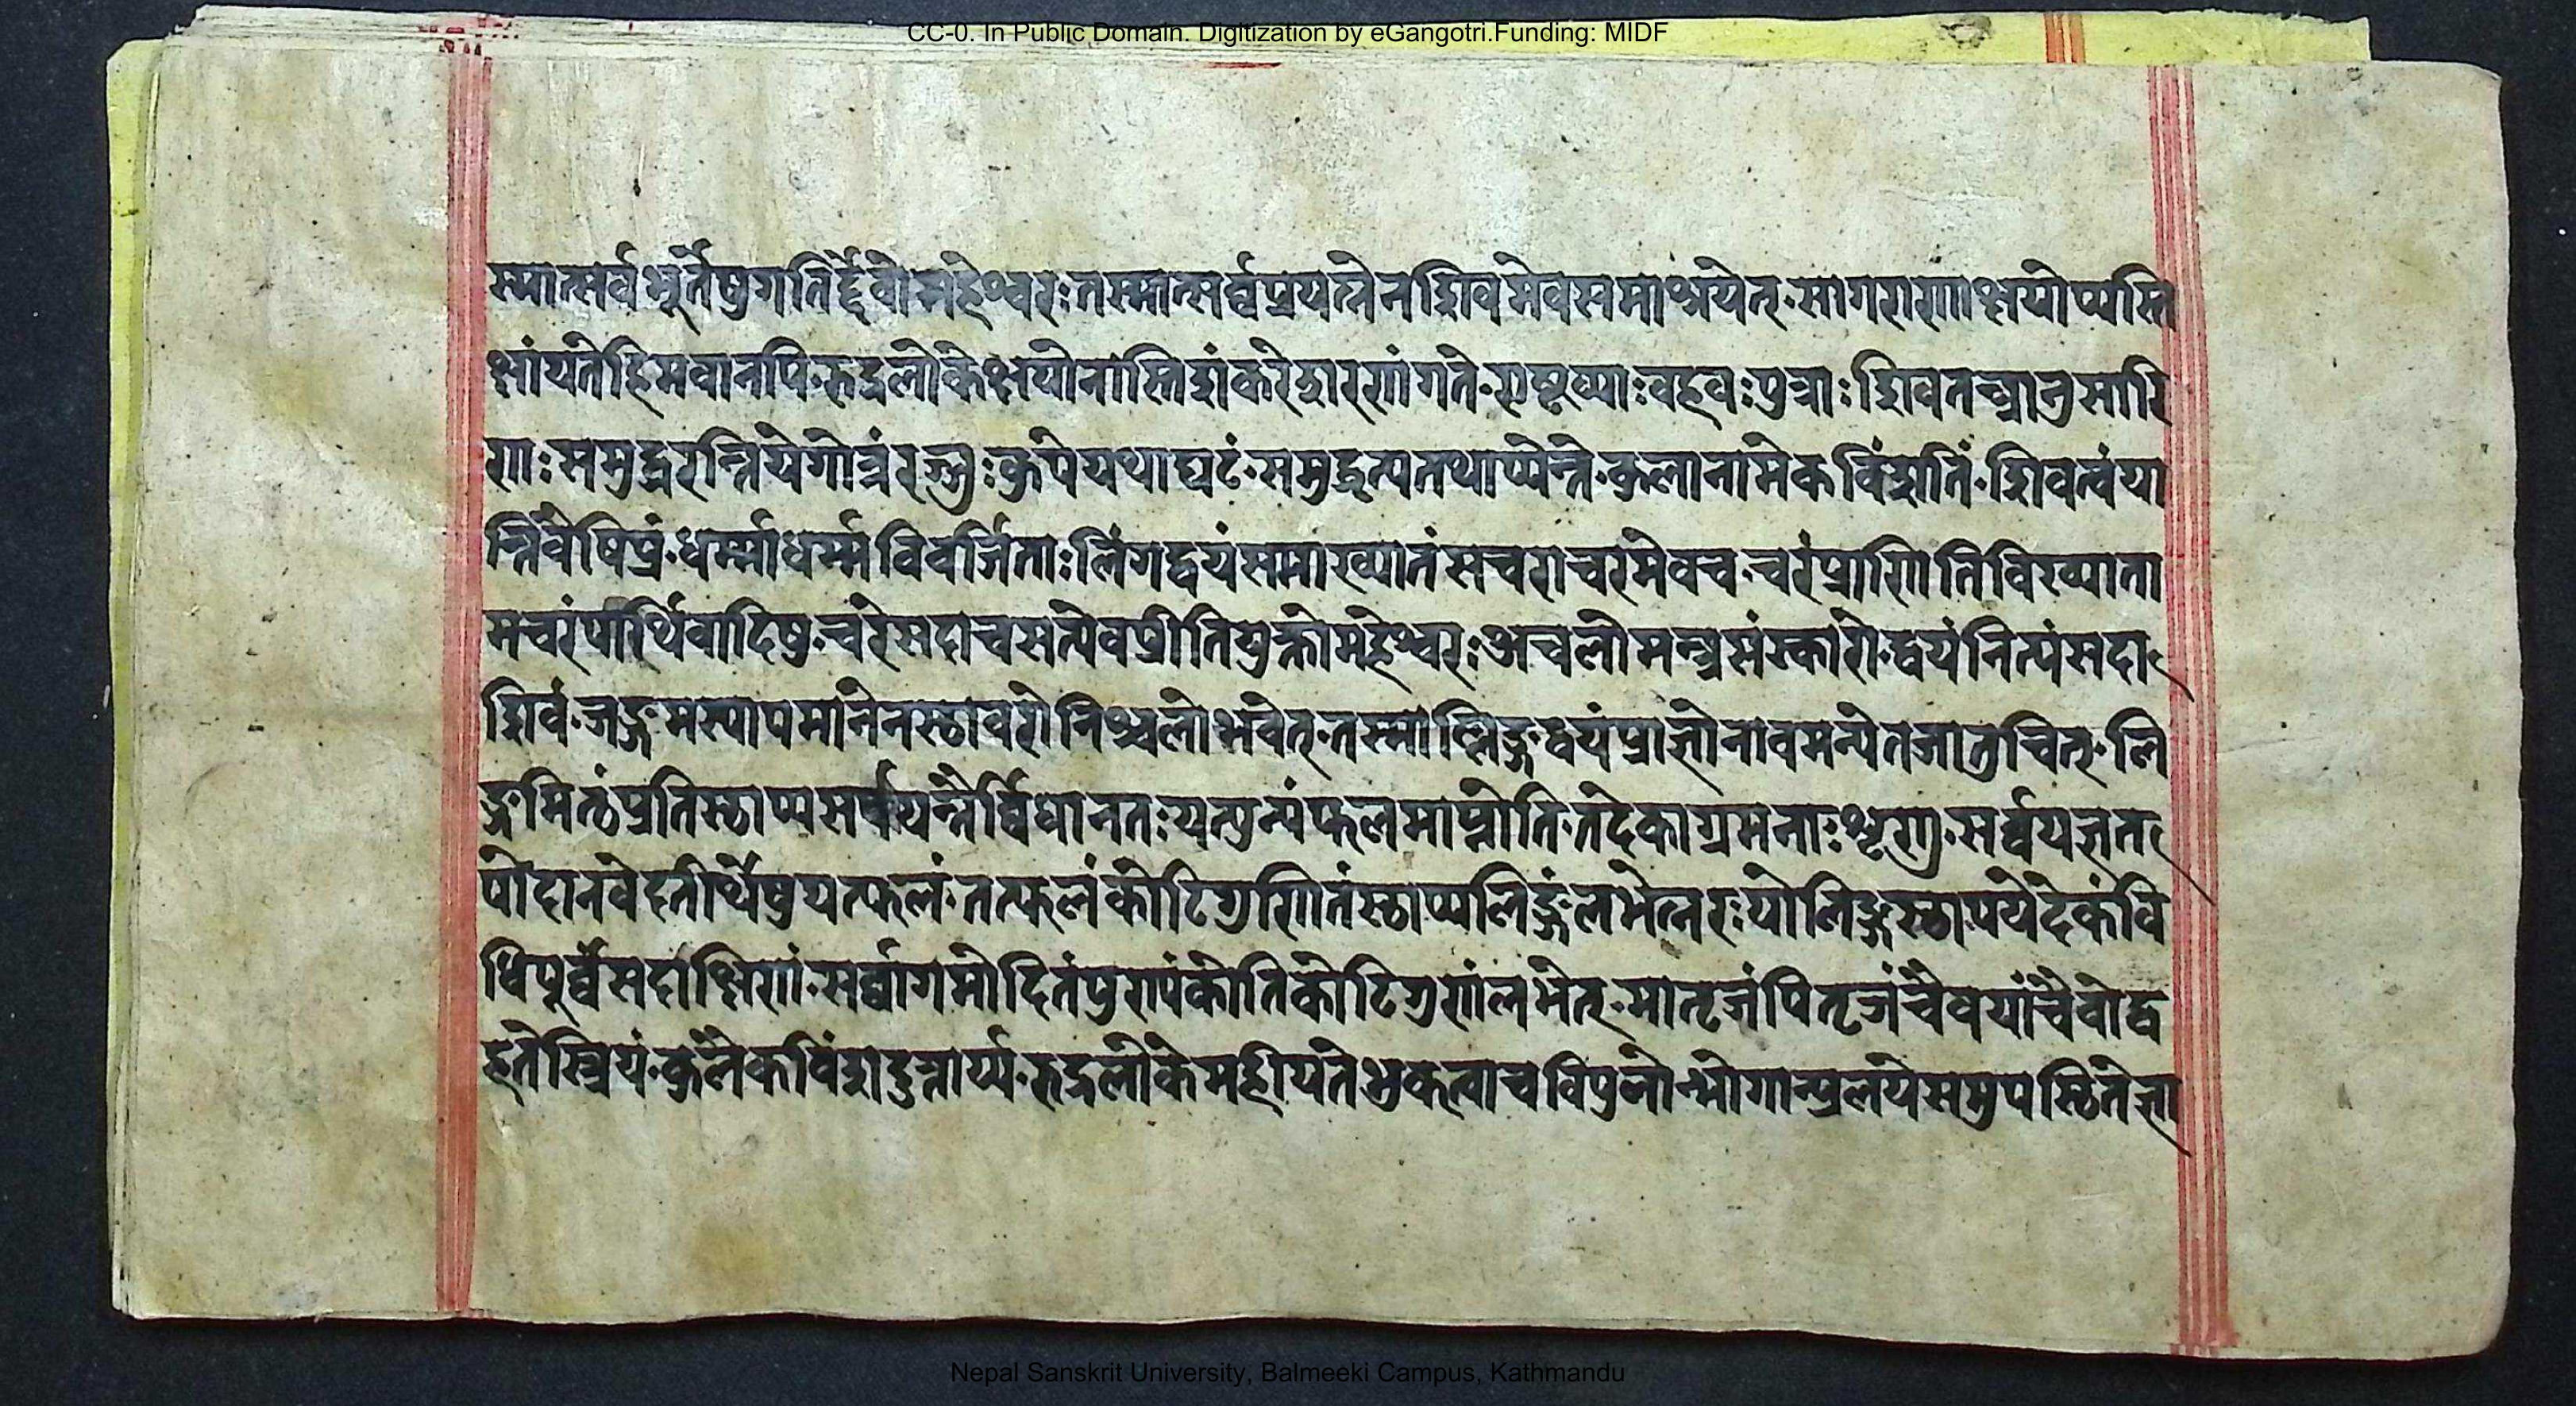 CC-0. In Public Domain. Digitization by eGangotri.Funding: MIDF
स्मात्सर्वभूतेषुगतिर्द्देवोमहेश्वरःतस्मात्सर्व्वप्रयत्नेनशिवमेवसमाश्रयेत्·सागराणांक्षयोप्यस्ति
क्षांयतेहिमवानपि·रुद्रलोकेक्षयोनास्तिशंकरेशरणंगते·एष्टव्याःवहवःपुत्राःशिवतन्त्रानुसारि
णाःसमुद्धरन्तियेगोत्रंरज्जुःकुपेयथाघटं·समुद्धृत्यतथाप्येन्ते·कुलानामेकविंशतिं·शिवत्वंया
न्तिंवेषिप्रं·धर्म्माधर्म्मविवर्जिताःलिंगद्वयंसमाख्यातंसचराचरमेवच·चरंप्राणितिविख्याता
मचरंपार्थिवादिषु·चरेसदाचसत्येवप्रीतियुक्तोमहेश्वरःअचलोमन्त्रसंस्कारो·द्वयंनित्यंसदा
शिवं·जङ्गमस्यापमानेनस्थावरोनिश्चलोभवेत्·तस्माल्लिङ्गद्वयंप्राज्ञोनावमन्येतजातुचित्·लि
ङ्गमित्थंप्रतिस्थाप्यसर्पयन्त्रैर्व्विधानतःयत्पुन्यंफलमाप्नोति·तदेकाग्रमनाःशृणु·सर्व्वयज्ञत
पोदानवेदतीर्थेषुयत्फलं·तत्फलंकोटिगुणितंस्थाप्यलिङ्गंलभेत्नरःयोलिङ्गस्थापयेदेकंवि
धिपूर्व्वंसदाक्षिणं·सर्व्वागमोदितंपुण्यंकोतिकोटिगुणंलभेत्·मातृजंपितृजंचैवयांचैवोद्व
हतेस्त्रियं·कुलैकविंशदुत्तार्य्य·रुद्रलोकेमहीयतेभुकत्वाचविपुलोन्भोगान्प्रलयेसमुपस्थितेज्ञा
Nepal Sanskrit University, Balmeeki Campus, Kathmandu